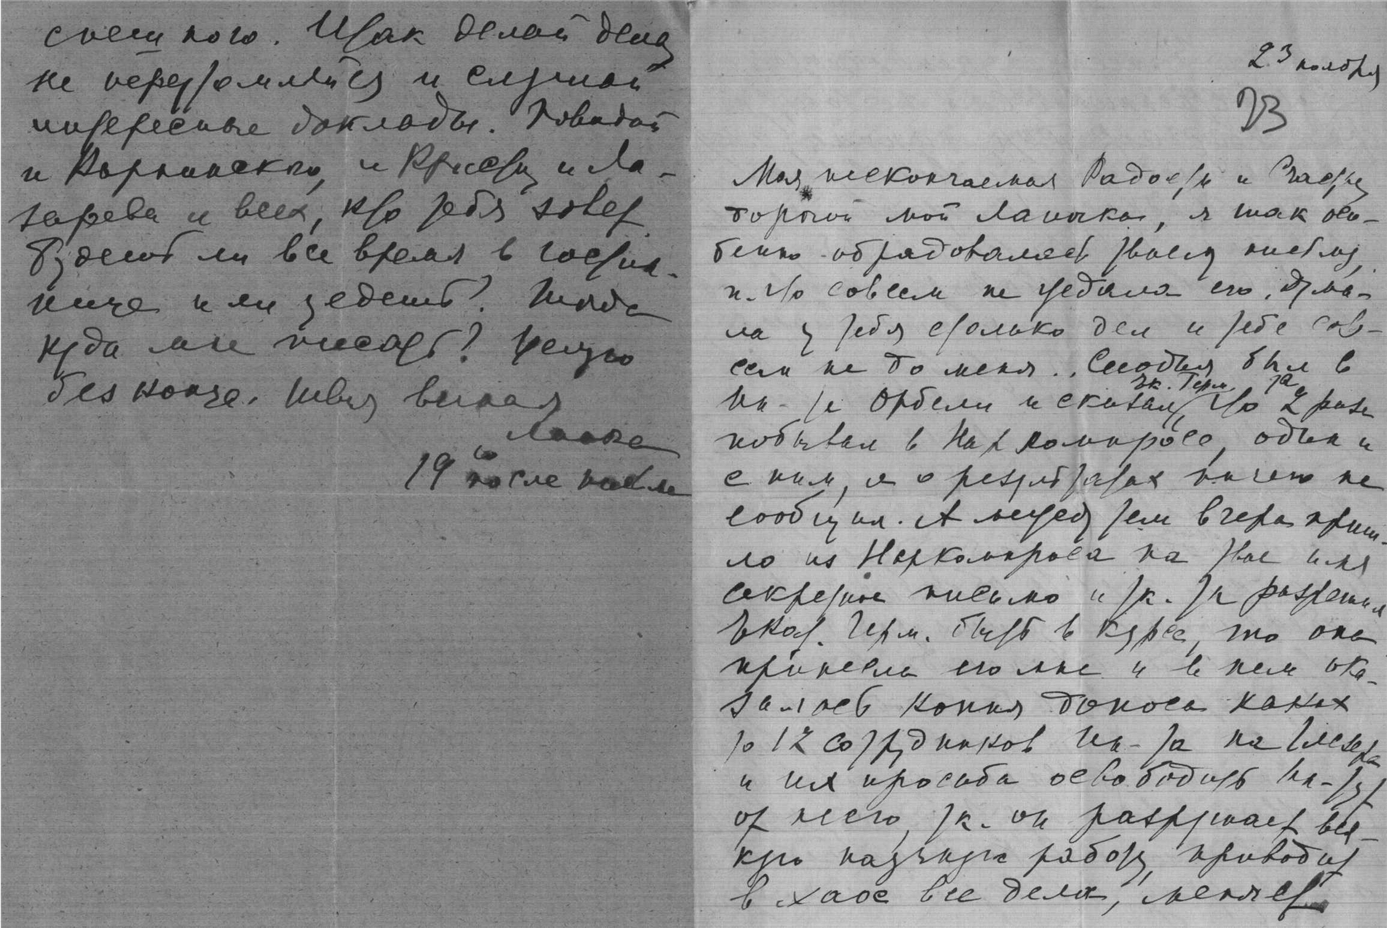 спешного. Итак делай дела
не переутомляйся и слушай
интересные доклады. Повидай
и Карпинского, и Кристи и Ла-
зарева и всех, кто тебя зовет.
Будешь ли все время в гостин-
нице или уедешь? Тогда
куда мне писать? Целую
без конца. Твоя верная
Лапочка
19ю после
23 ноября
23
Моя нескончаемая Радость и Счастье,
дорогой мой Лапочка, я так осо-
бенно обрадовалась твоему письму,
п.что совсем не ждала его. Дума-
ла у тебя столько дел и тебе сов-
сем не до меня. Сегодня был в
Ин-те Орбели и сказал Ек. Герм., что за 2 раза
побывал в Наркомпросе, один и
с ним, и о результатах ничего не
сообщил. А между тем вчера приш-
ло из Наркомпроса на твое имя
секретное письмо и т.к. ты разрешил
Екат. Герм. быть в курсе, то она
принесла его мне и в нем ока-
залась копия доноса каких
то 12 сотрудников Ин-та на
и их просьба освободить Ин-тут
от него, т.к. он разрушает вся-
кую научную работу, приводит
в хаос все дела, меняет